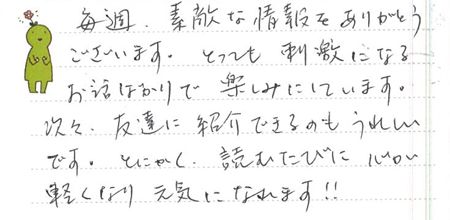 毎週、素敵な情報をありがとう
ございます。とっても刺激になる
お話ばかりで楽しみにしています。
次々、友達に紹介できるのもうれしい
です。とにかく、読むたびに心が
軽くなり元気になれます!!